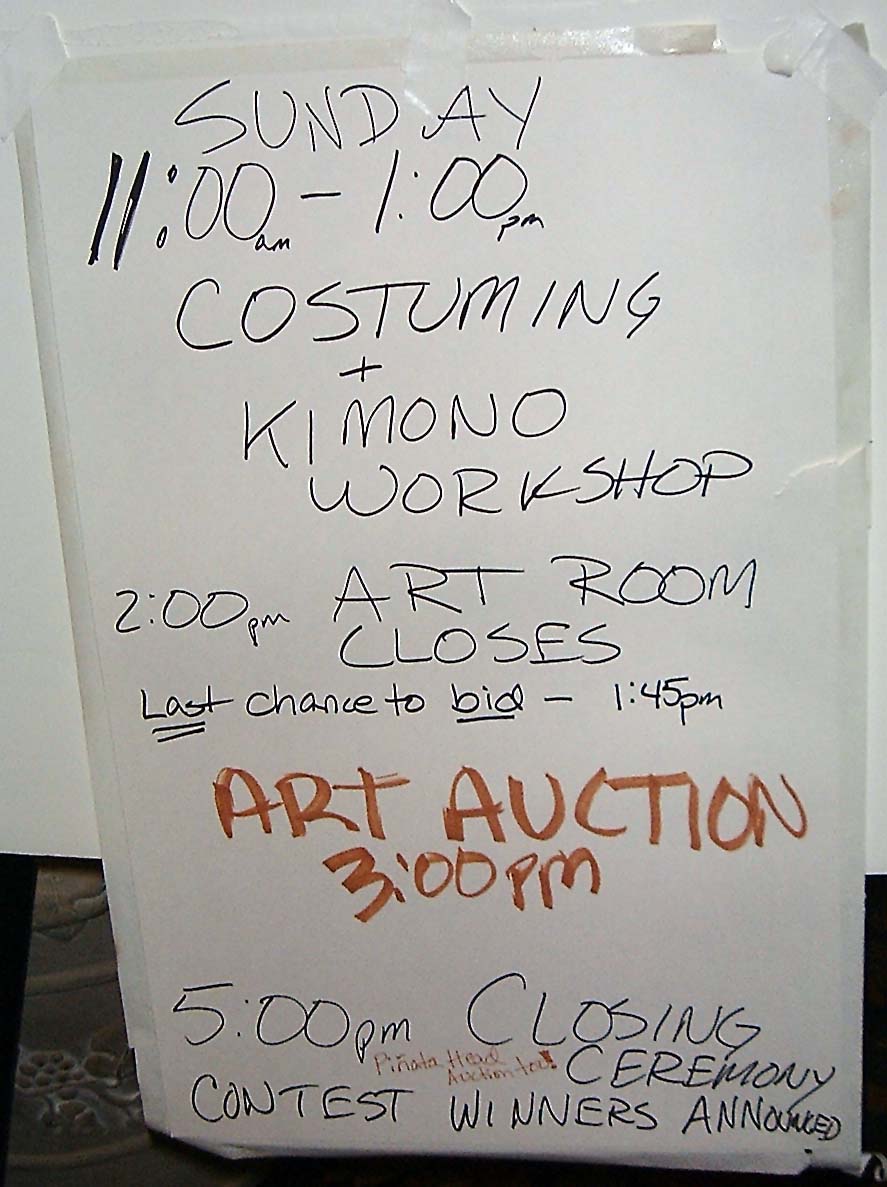 SUNDAY
11:00am - 1:00pm
COSTUMING
+
KIMONO
WORKSHOP
2:00pm ART ROOM
CLOSES
Last chance to bid - 1:45pm
ART AUCTION
3:00PM
5:00pm CLOSING
Piñata Head
Auction too!
CEREMONY
CONTEST WINNERS ANNOUNCED